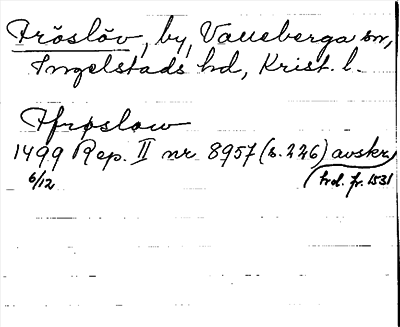 Fröslöv, by, Valleberga sn,
Ingelstads hd, Krist. l.
Ffrøslow
1499 Rep. II nr 8957 (s. 226) avskr.
6/12 hrd. fr. 1531